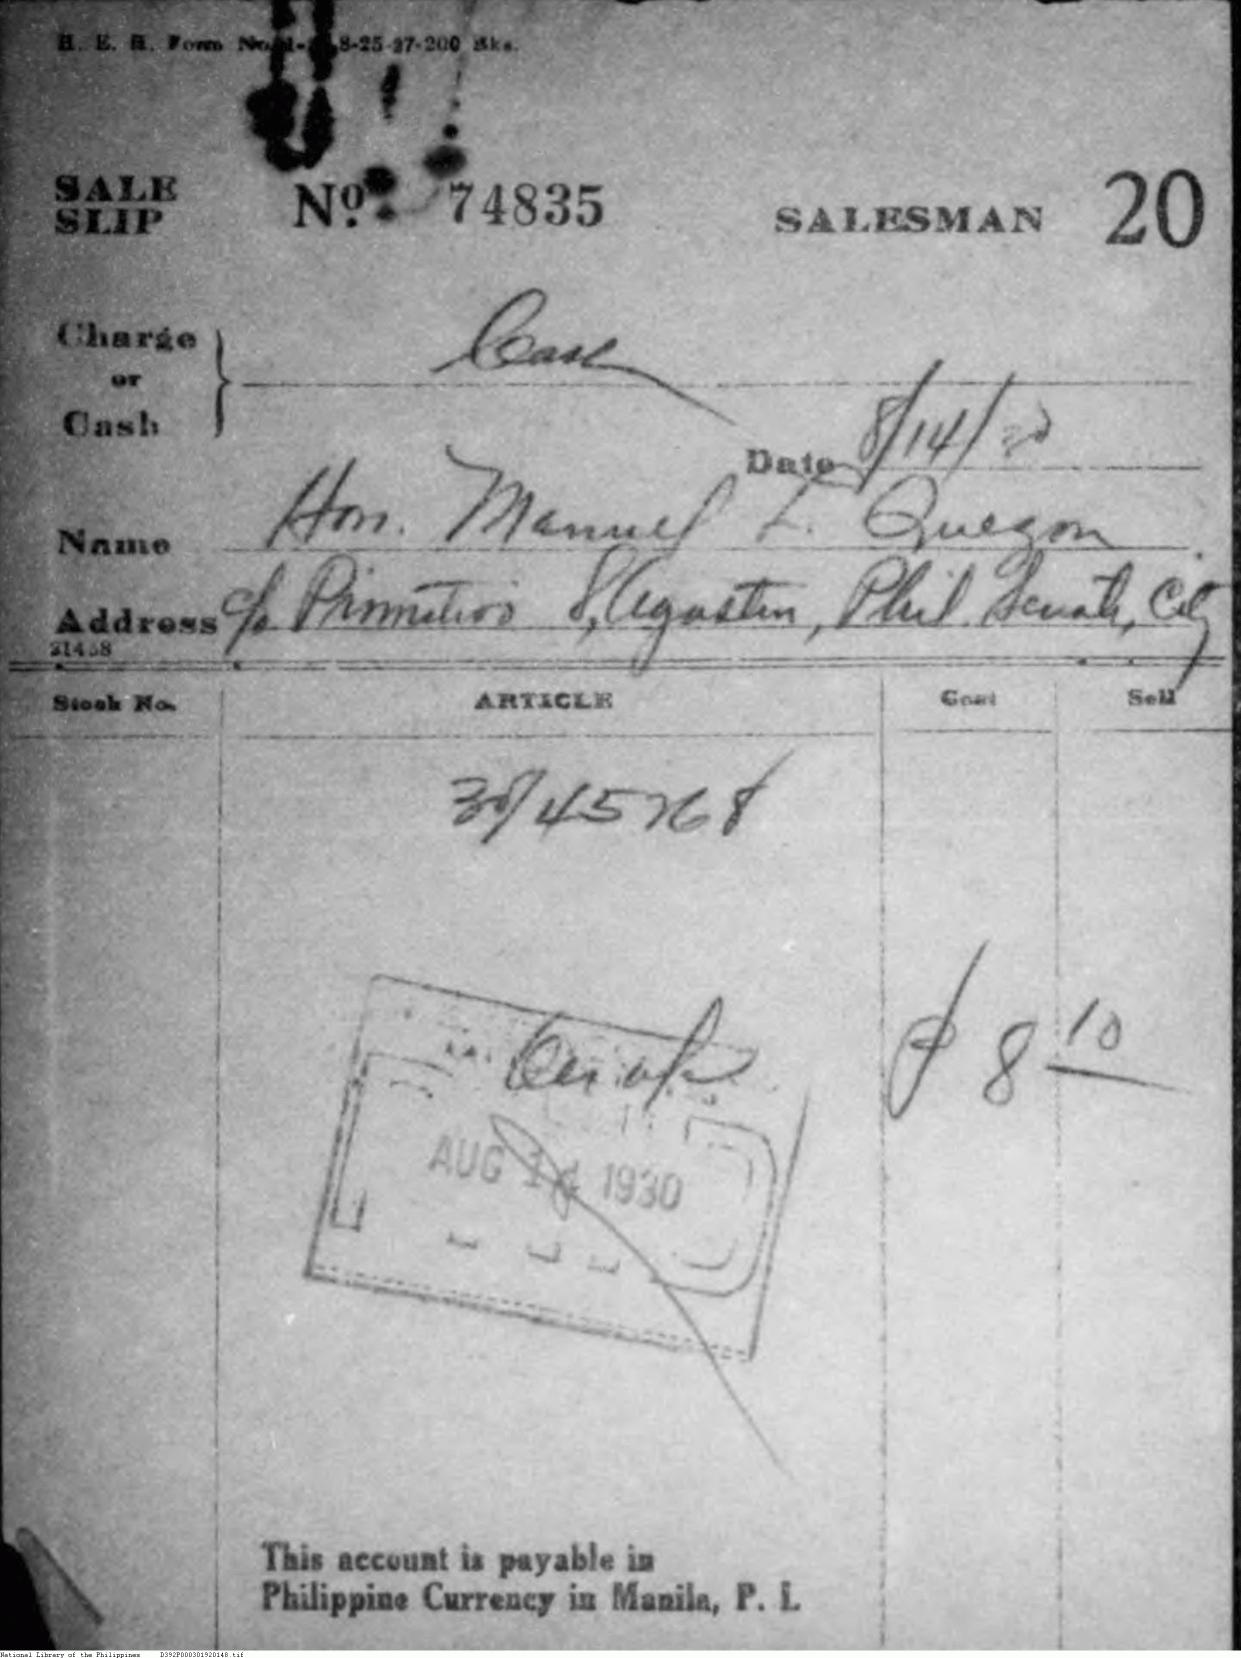 H. E. H. Form No. 8-25-27-200 Bks.
SALE
SLIP
No. 74835
SALESMAN 20
Charge
or
Cash
Cash
Date 8/14/30
Name Hon. Manuel L. Quezon
Address c/o Primitivo S. Agustin, Phil. Senate, City
21458
Stock No. ARTICLE Cost Sell
30/45768
₱ 8 10
AUG 14 1930
This account is payable in
Philippine Currency in Manila, P. I.
National Library of the Philippines D392P000301920148.tif